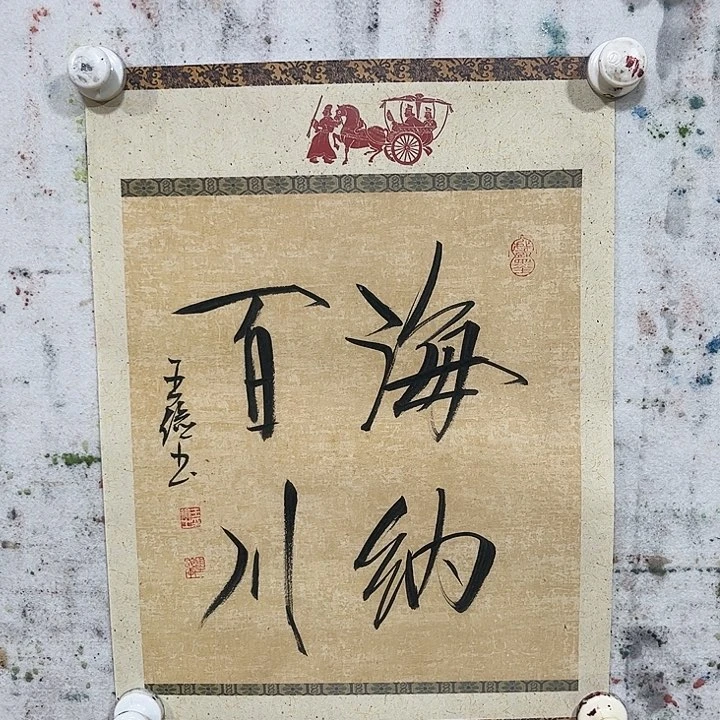 海纳
百川
王德书